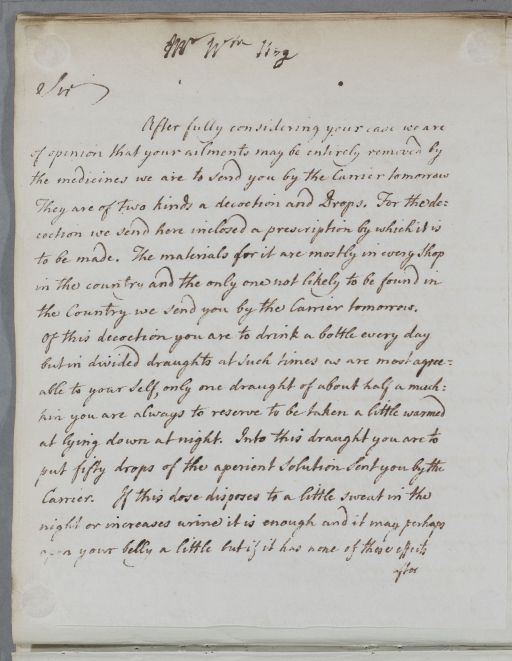 Mr Wm
Sir
After fully considering your case we are
of opinion that your ailments may be entirely removed by
the medicines we are to send you by the Carrier tomorrow
They are of two kinds a decoction and Drops. For the de=
coction we send here inclosed a prescription by which it is
to be made. The materials for it are mostly in every shop
in the country and the only one not likely to be found in
the Country we send you by the Carrier tomorrow.
Of this decoction you are to drink a bottle every day
but in divided draughts at such times as are most agree=
able to your self, only one draught of about half a much=
kin you are always to reserve to be taken a little warmed
at lying down at night. Into this draught you are to
put fifty drops of the aperient Solution sent you by the
Carrier. If this dose disposes to a little sweat in the
night or increases urine it is enough and it may perhaps
open your belly a little but if it has none of these effects
after